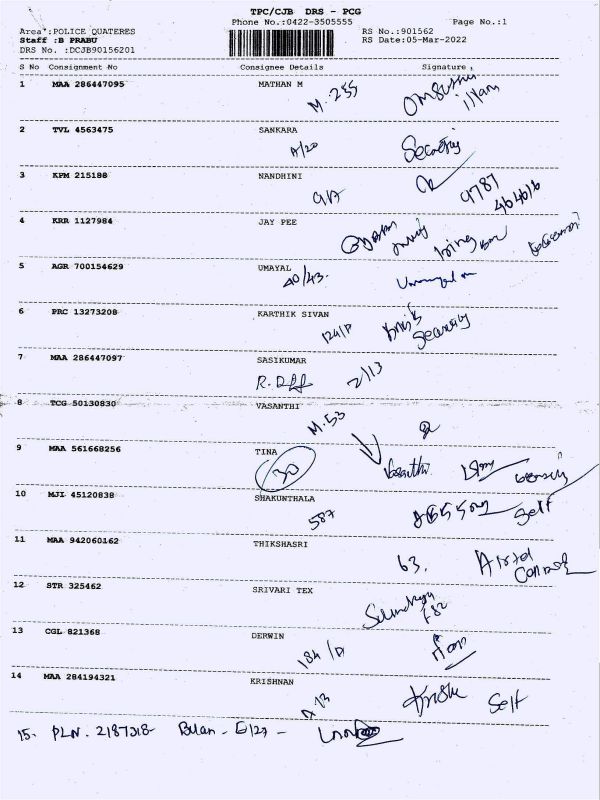 TPC/CJB DRS - PCG
Phone No.:0422-3505555 Page No.:1
Area :POLICE QUATERES RS No.:901562
Staff :B PRABU RS Date:05-Mar-2022
DRS No. :DCJB90156201
S No Consignment No Consignee Details Signature
1 MAA 286447095 MATHAN M
M.255
2 TVL 4563475 SANKARA
A/20 Security
3 KPM 215188 NANDHINI
9787
464616
4 KRR 1127984 JAY PEE
5 AGR 700154629 UMAYAL
40/43.
6 PRC 13273208 KARTHIK SIVAN
124/D Security
7 MAA 286447097 SASIKUMAR
2/13
8 TCG 50130830 VASANTHI
M.53
9 MAA 561668256 TINA
30 Vasanthi
10 MJI 45120838 SHAKUNTHALA
587 Self
11 MAA 942060162 THIKSHASRI
63. Airtel
12 STR 325462 SRIVARI TEX
F82
13 CGL 821368 DERWIN
184/D
14 MAA 284194321 KRISHNAN
A 13 Self
15. PLN. 2187218